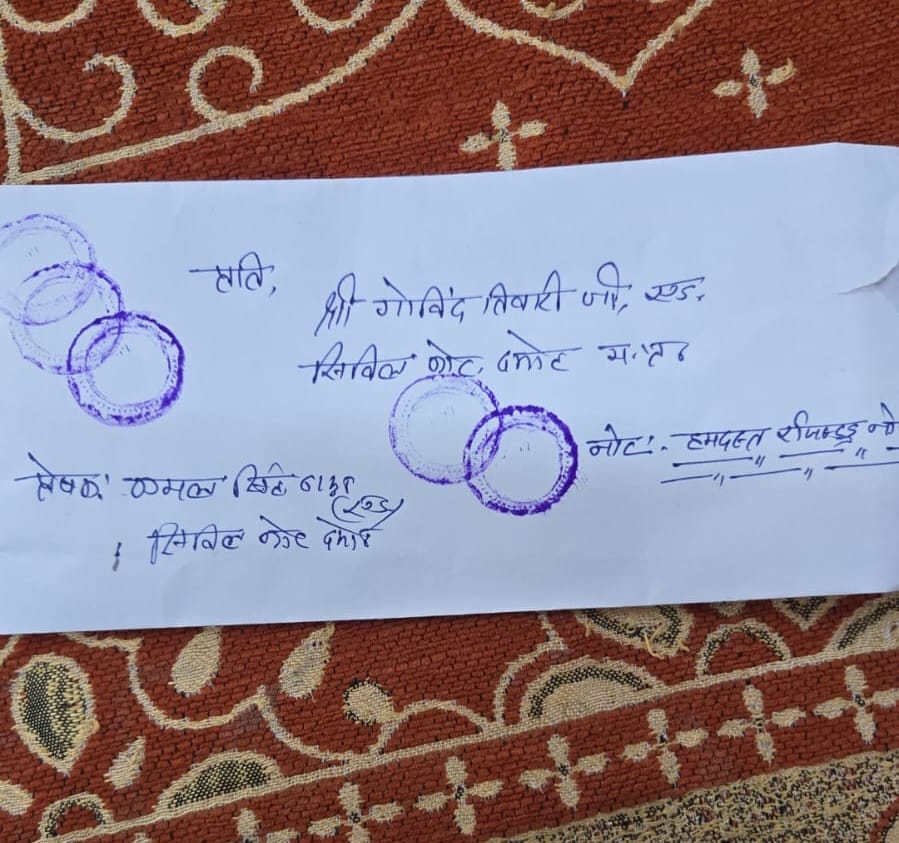 प्रति,
श्री गोविंद तिवारी जी, एड.
सिविल कोर्ट, दमोह म.प्र.
नोट:- हमदस्त रजिस्टर्ड
प्रेषक: कमल सिंह ठाकुर
(एड)
सिविल कोर्ट दमोह